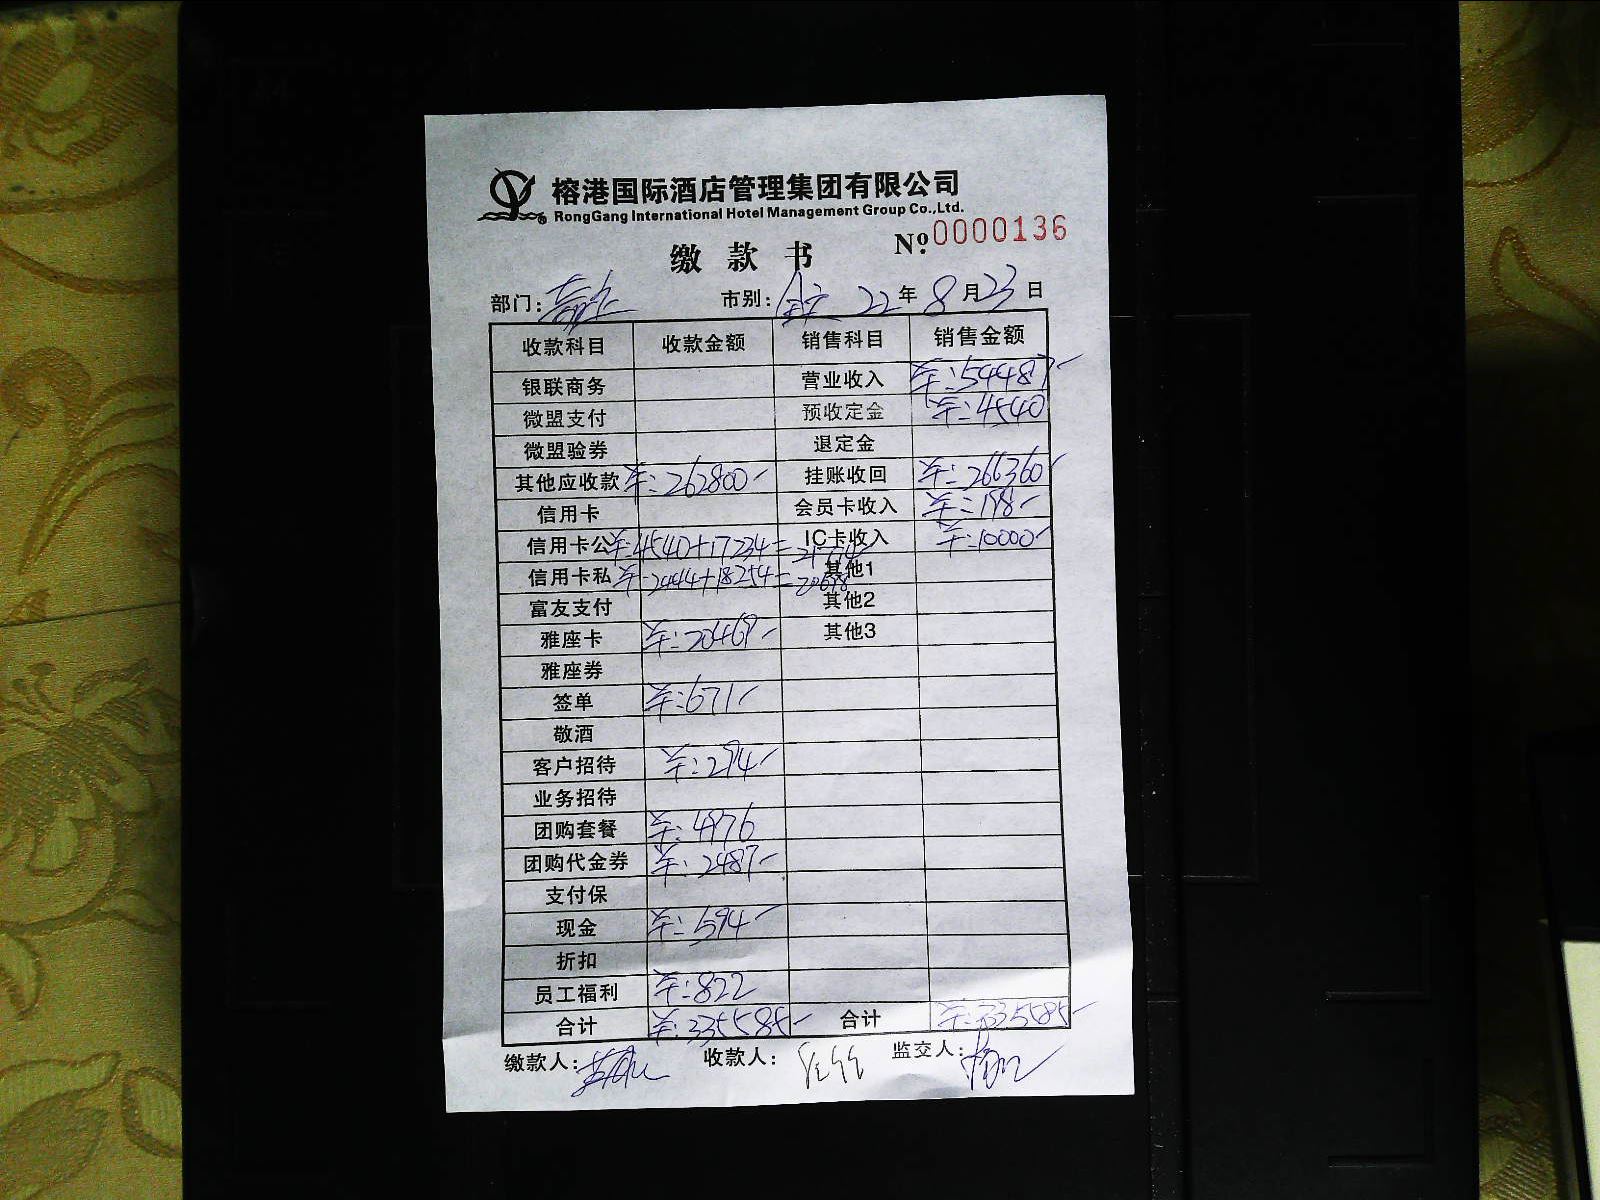 榕港国际酒店管理集团有限公司
RongGang International Hotel Management Group Co.,Ltd.
缴款书 №0000136
部门: 市别: 22年8月23日
收款科目 收款金额 销售科目 销售金额
银联商务 营业收入 羊:54487-
微盟支付 预收定金 羊:4540
微盟验券 退定金
其他应收款 羊:262800- 挂账收回 羊:266360-
信用卡 会员卡收入 羊:198-
信用卡公 羊:4540+17234= IC卡收入 羊:10000-
信用卡私 羊:2444+18254=20698 其他1
富友支付 其他2
雅座卡 羊:20469- 其他3
雅座券
签单 羊:671-
敬酒
客户招待 羊:294-
业务招待
团购套餐 羊:4976
团购代金券 羊:2487-
支付保
现金 羊:594-
折扣
员工福利 羊:822
合计 羊:335585- 合计 羊:335585-
缴款人: 收款人: 监交人: